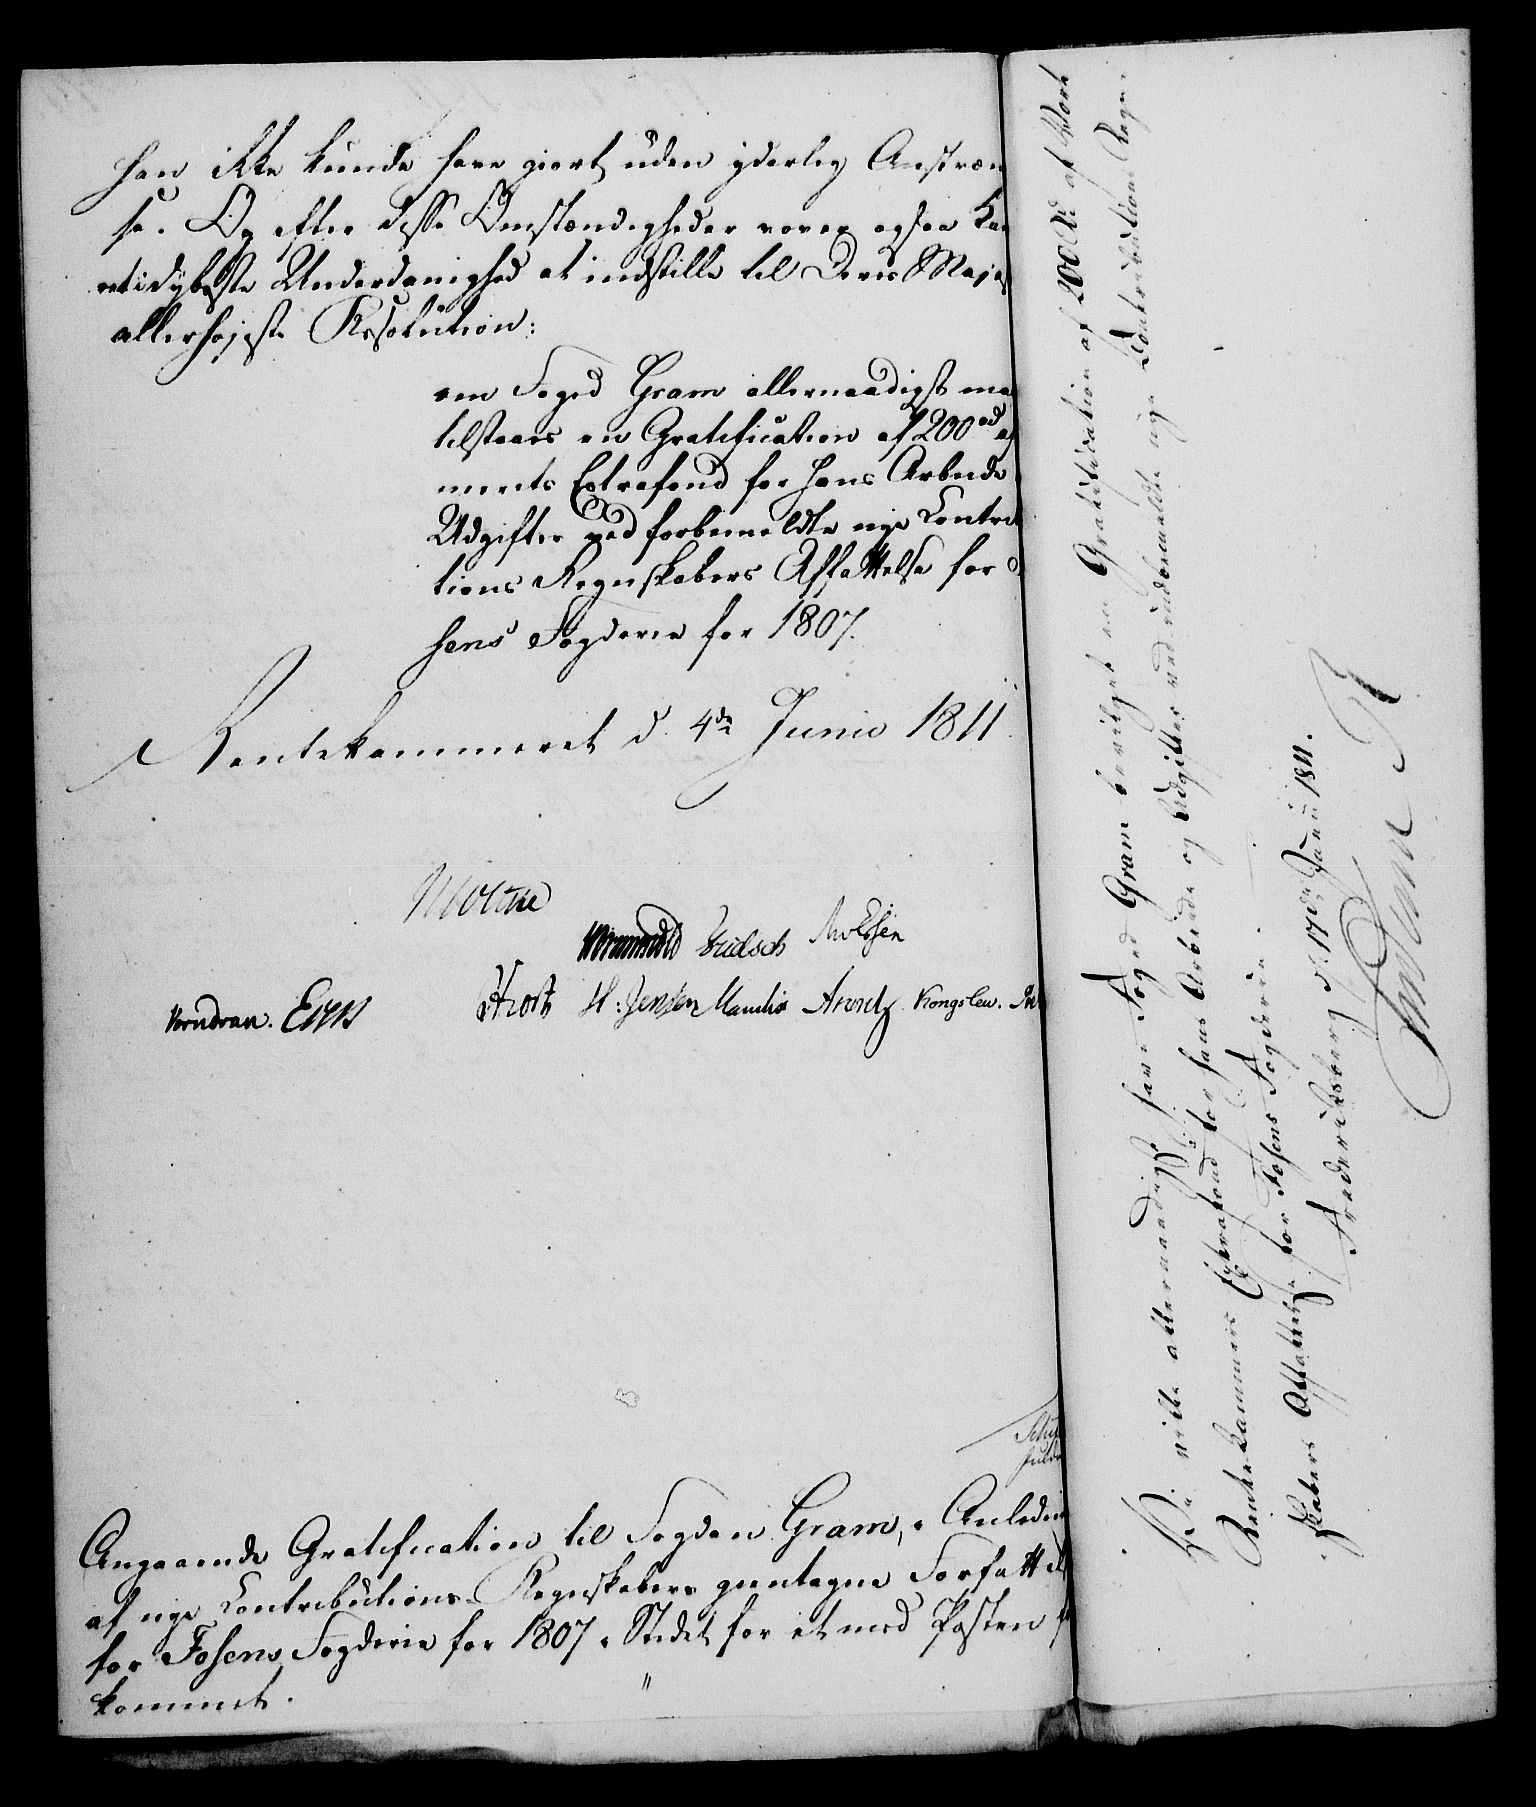 han ikke kunde have giort uden yderlig Anstræn
se. Og efter disse Omstændigheder vover ogsaa Kam
ret i dybeste Underdanighed at indstille til Deres Majes
allerhøjeste Resolution:
om Foged Gram allernaadigst maa
tilstaaes en Gratification af 200 rd af
merets Extrafond for hans Arbeide
Udgifter ved forbemeldte nye Contri
tions Regnskabers Affattelse for
sens Fogderie for 1807.
Rentekammeret d. 4de Junii 1811.
Moltke
Wormskiold
Knudran. Eyen H: Jensen Mandix Arentz Kongslew.
Angaaende Gratification til Fogden Gram, i Anledni
af nye Contributions-Regnskabers gientagne Forfattel
for Fosens Fogderie for 1807 i Stedet for et med Posten
kommet.
Vi ville allernaadigst have Foged Gram bevilget en Gratification af 200 Rd af Vort
Rentekammers Extrafond for hans Arbeide og Udgifter ved indbemeldte nye Contributions Regn-
skabers Affattelse for Fosens Fogderie.
Frederiksberg d. 17de Junii 1811.
Frederik R